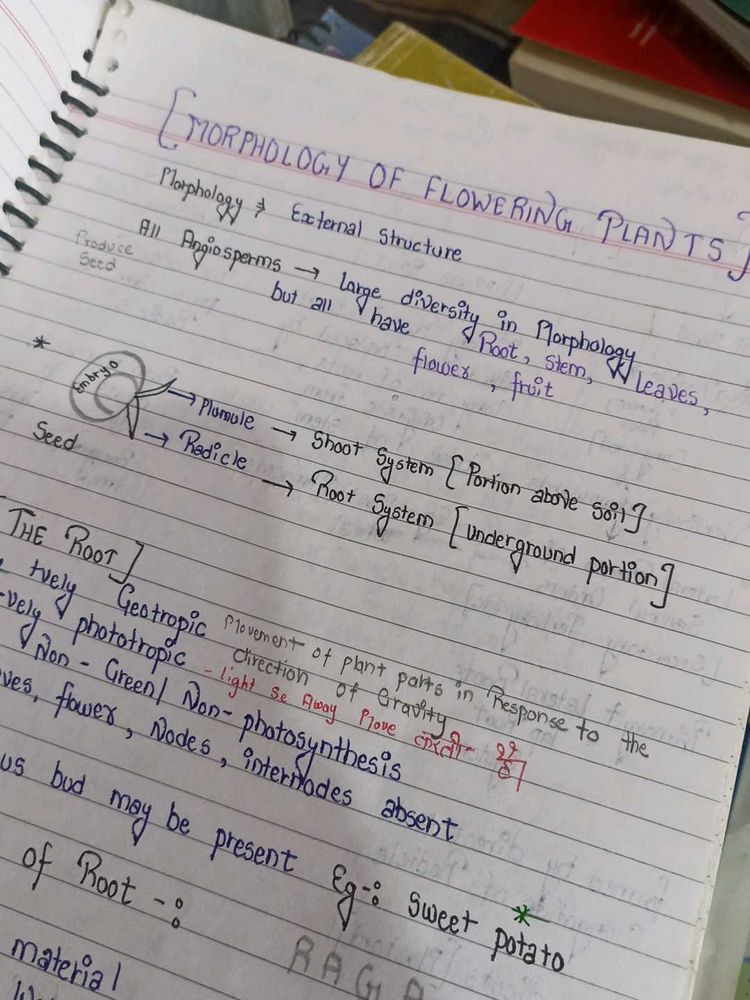 [MORPHOLOGY OF FLOWERING PLANTS]
Morphology → External Structure
All Angiosperms → Large diversity in Morphology
Produce
Seed
but all have Root, Stem, leaves,
flower, fruit
*
Embryo
→ Plumule → Shoot System [Portion above soil]
Seed
→ Radicle → Root System [underground portion]
THE ROOT]
+vely Geotropic Movement of plant parts in Response to the
direction of Gravity
-vely phototropic - light se Away Move करती है
Non-Green/Non-photosynthesis
ves, flower, Nodes, internodes absent
us bud may be present Eg-: Sweet potato
*
of Root -:
material
RAGA